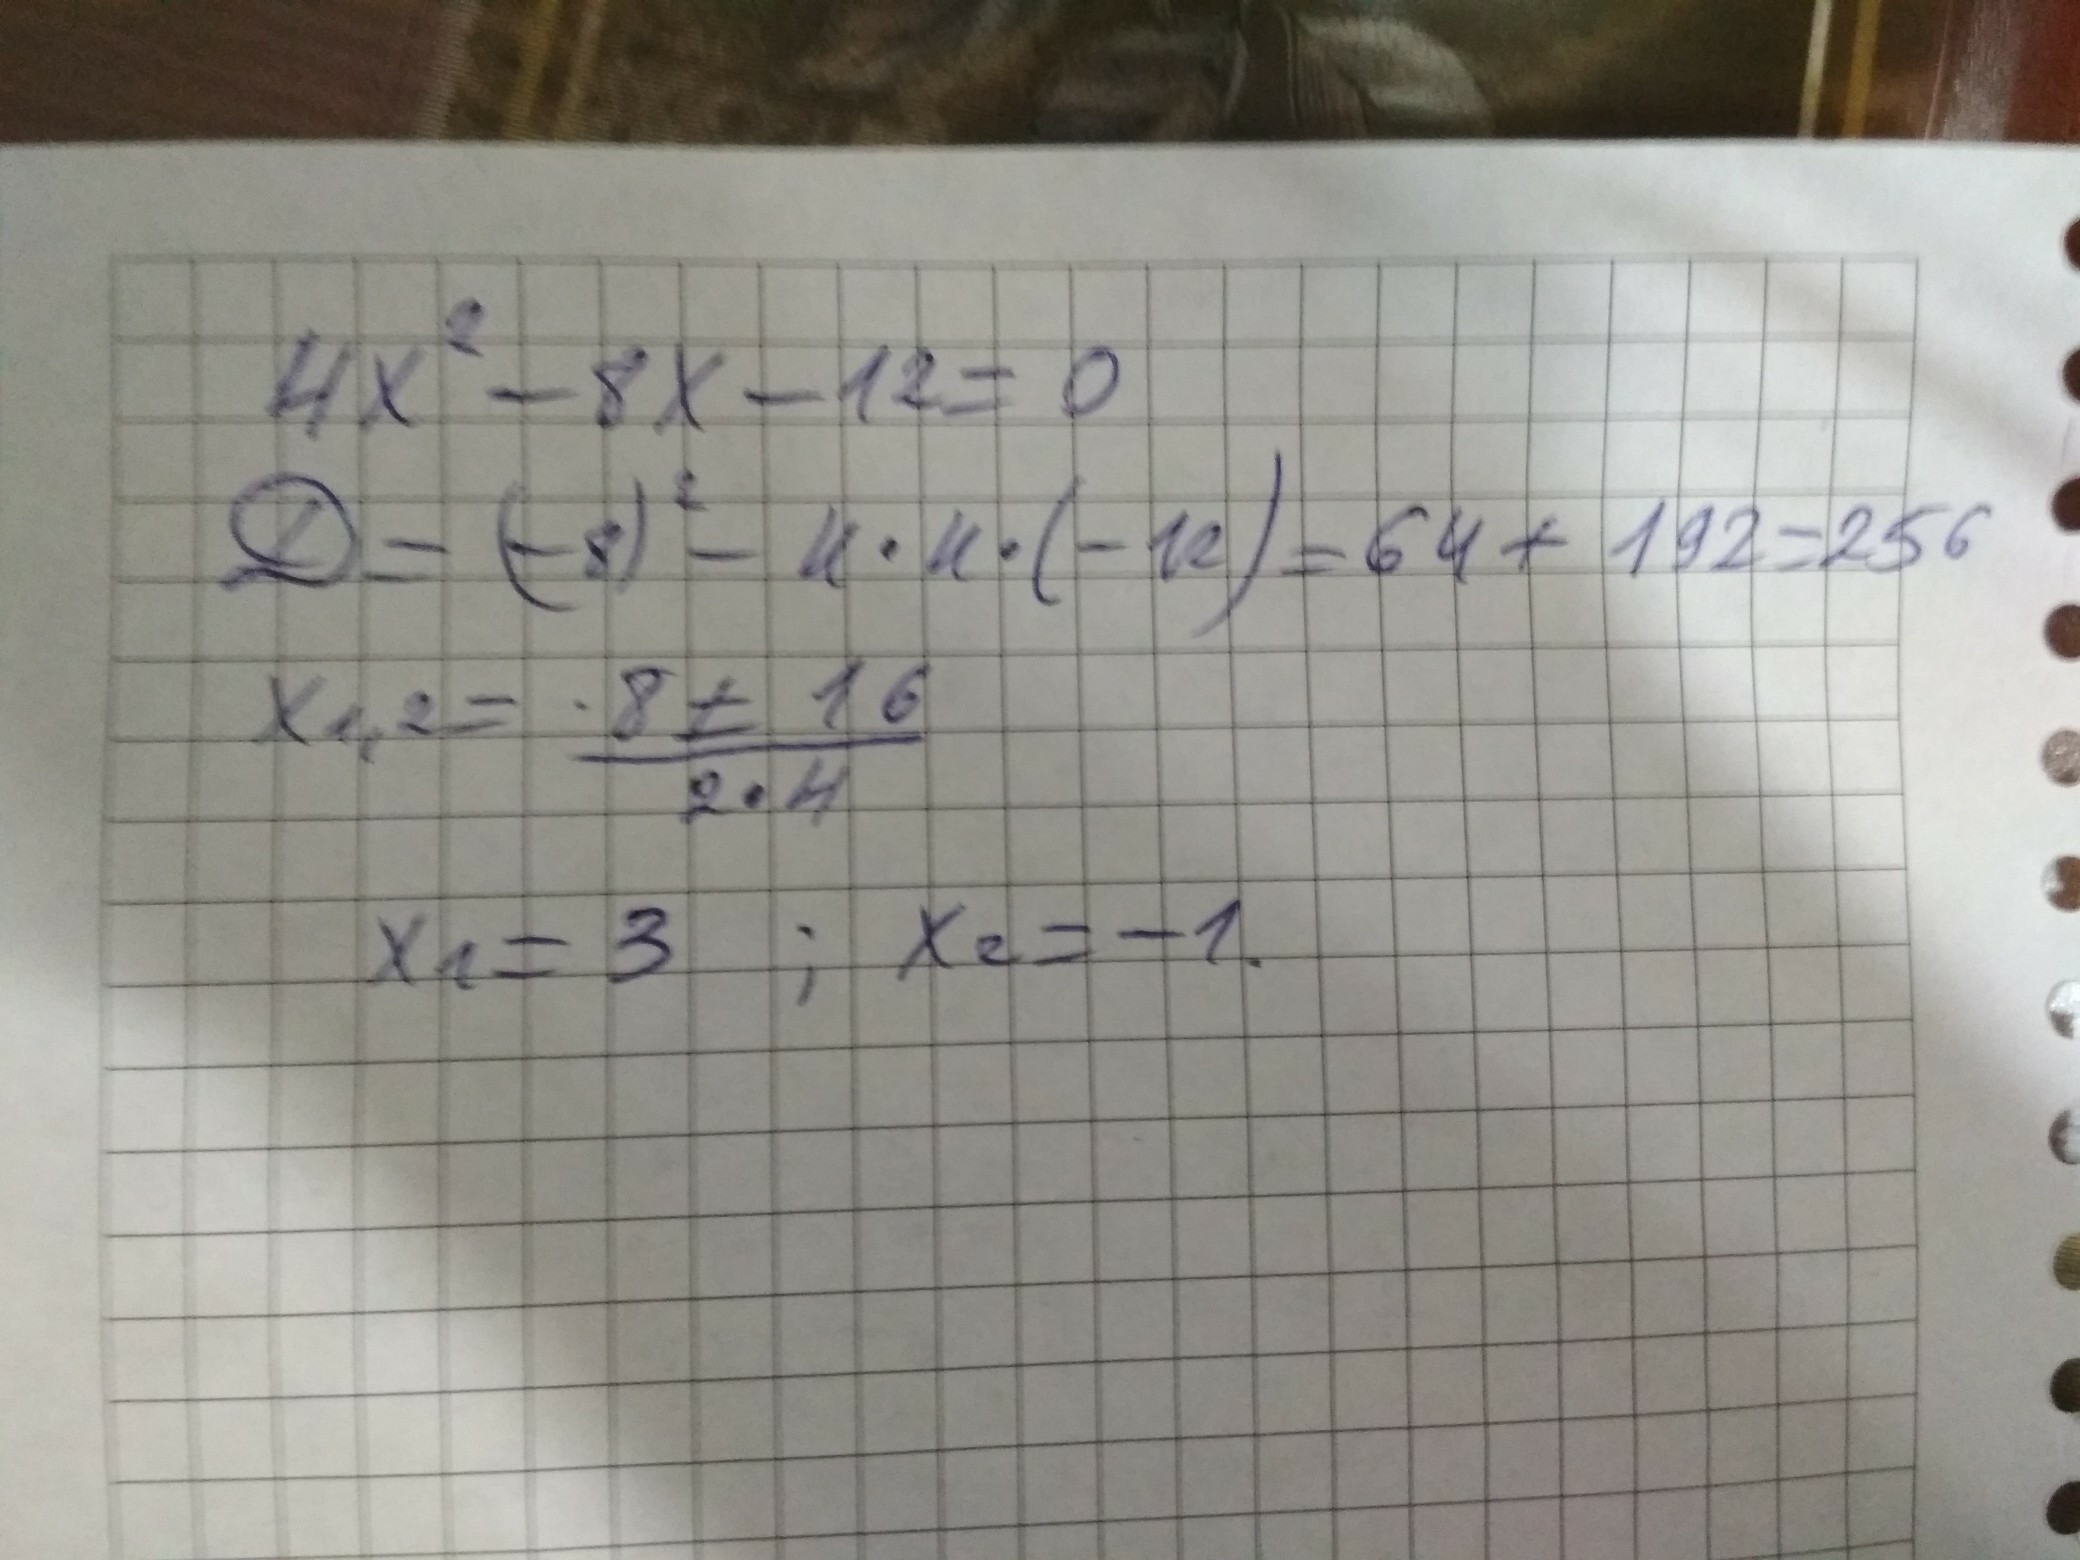 4x² - 8x - 12 = 0
D = (-8)² - 4 · 4 · (-12) = 64 + 192 = 256
x₁,₂ = (8 ± 16) / (2 · 4)
x₁ = 3 ; x₂ = -1.